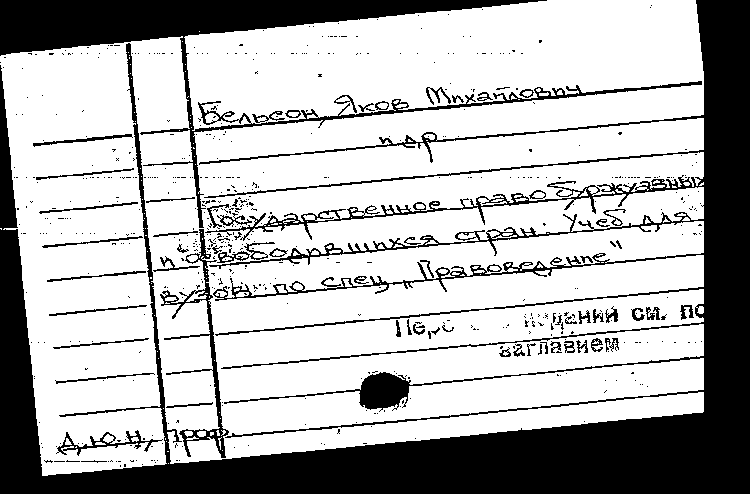 Бельсон, Яков Михайлович
и др.
Государственное право буржуазных
и освободившихся стран: Учеб. для
вузов по спец. „Правоведение"
изданий см. по
заглавием
Д.ю.н., проф.